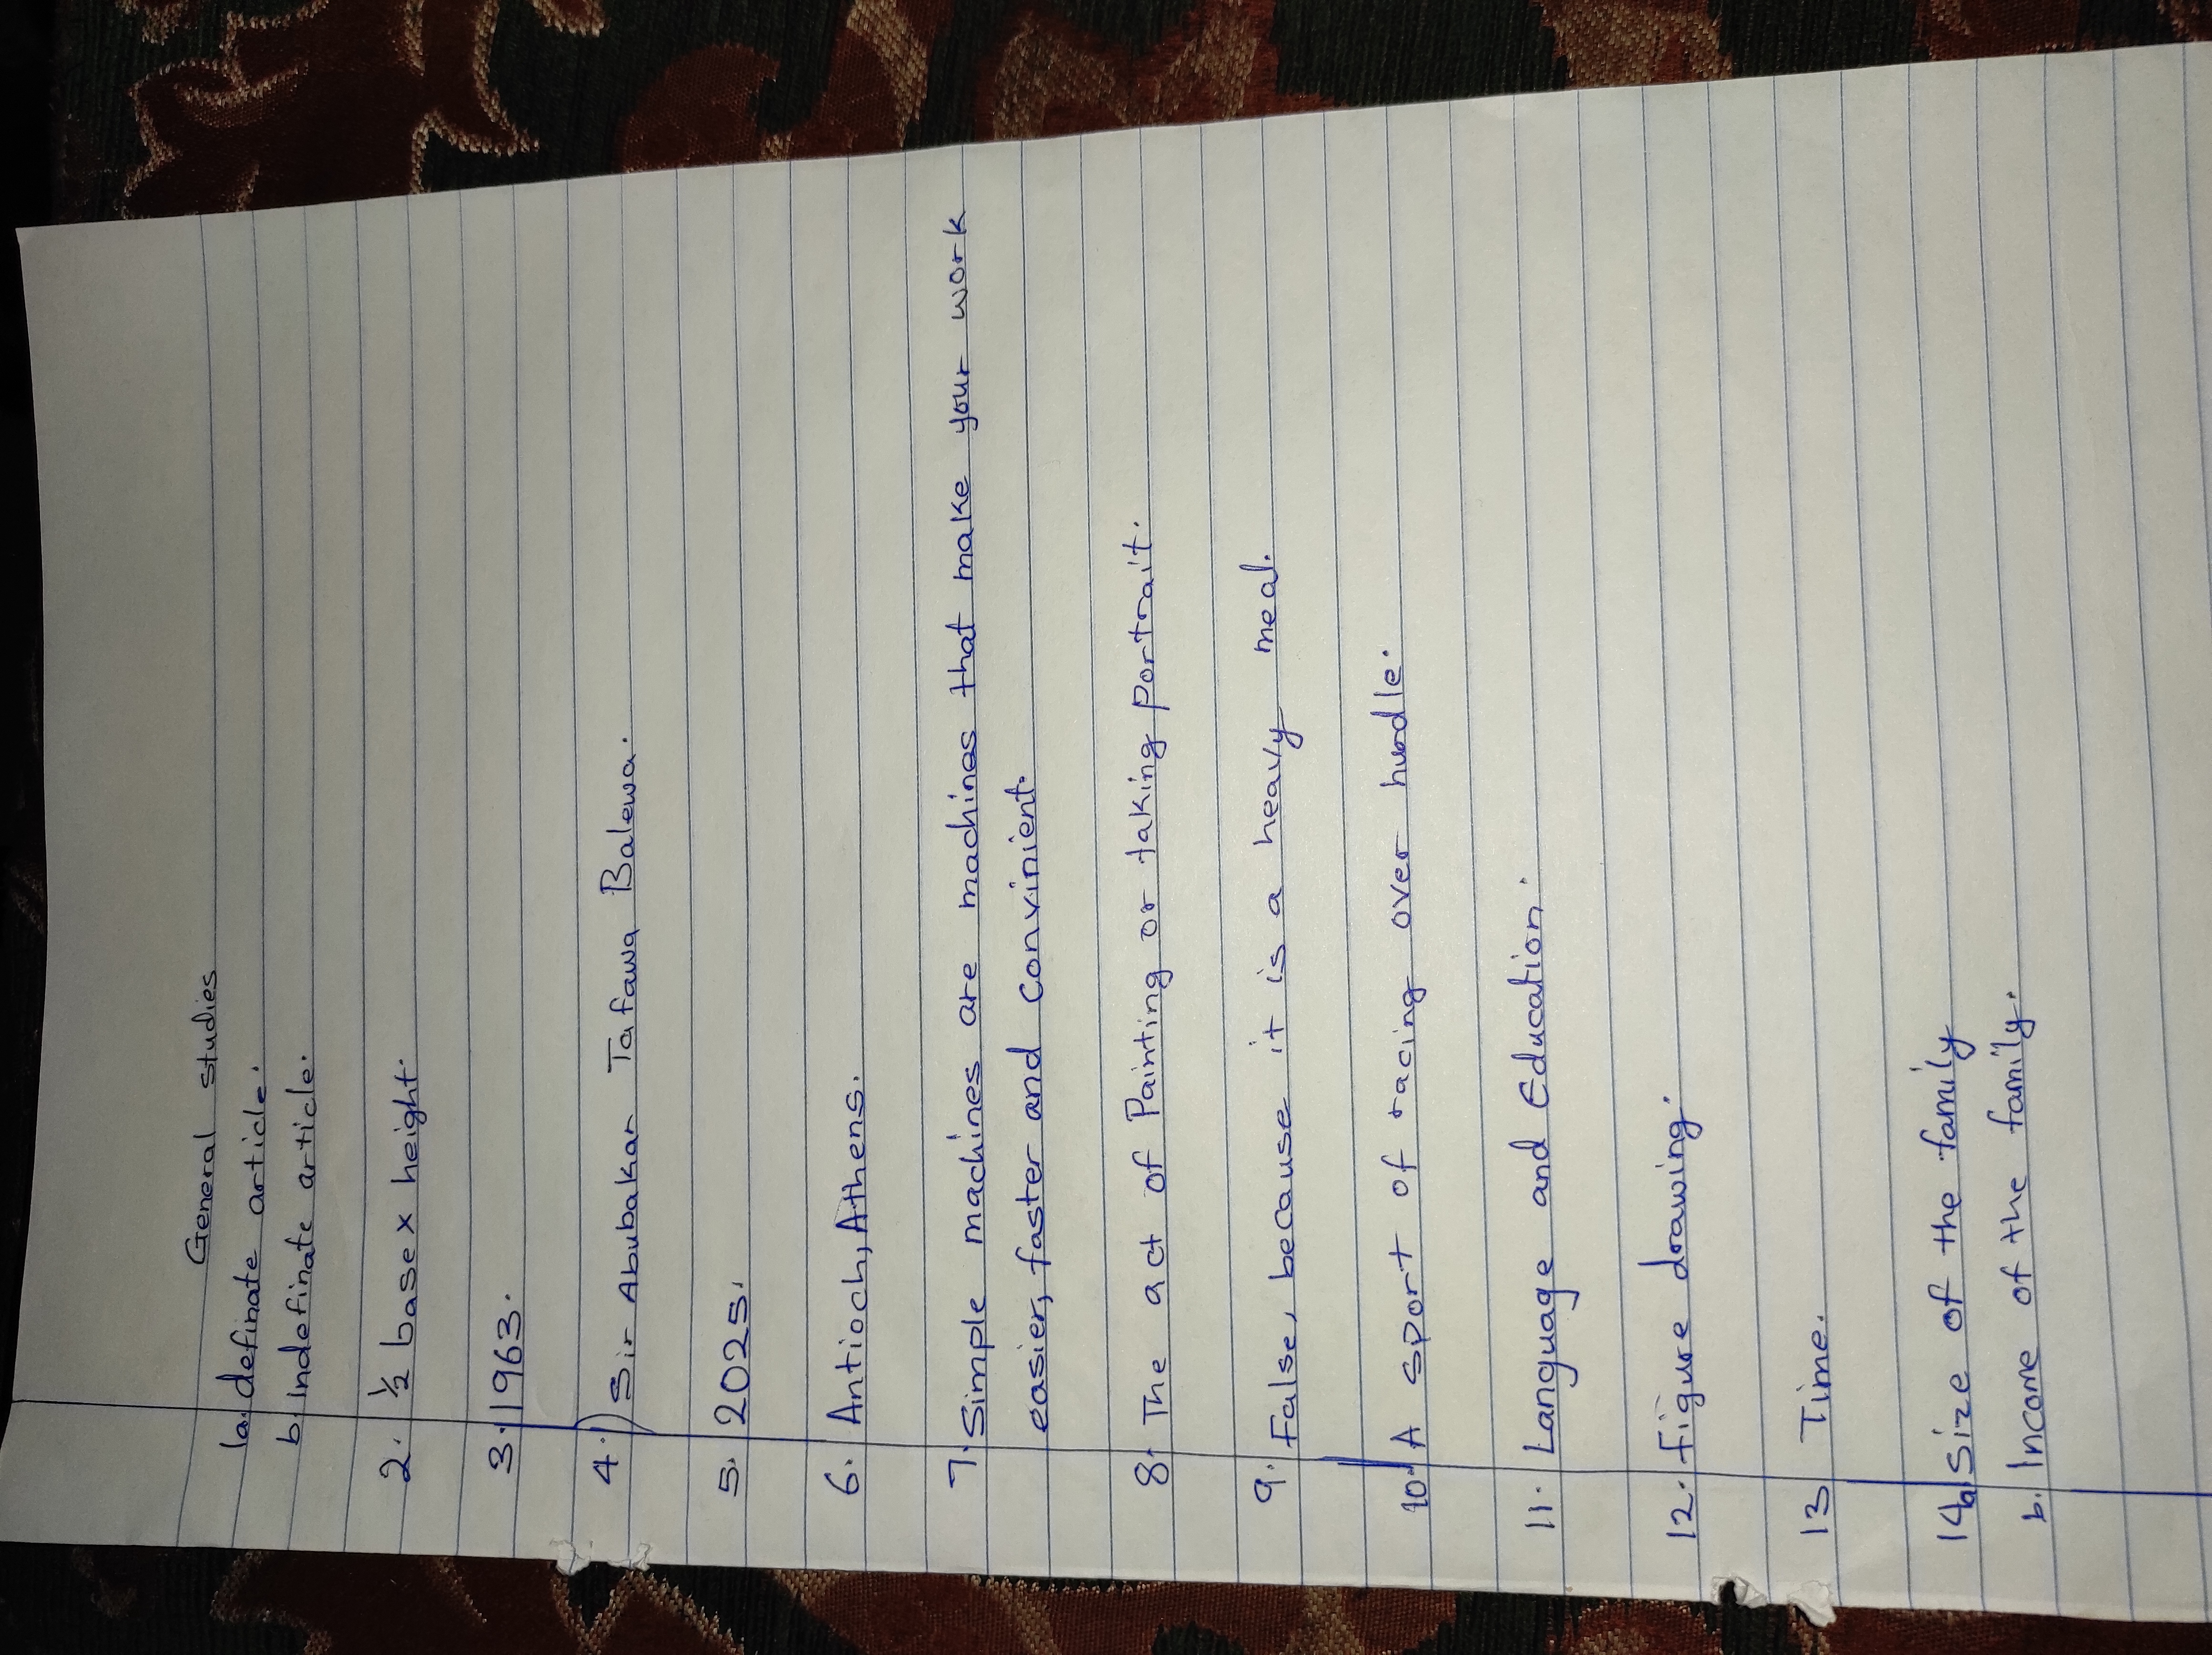 General studies
1a. definate article.
b. Indefinate article.
2. ½ base x height.
3. 1963.
4. Sir Abubakar Tafawa Balewa.
5. 2025.
6. Antioch, Athens.
7. Simple machines are machines that make your work
easier, faster and convinient.
8. The act of Painting or taking portrait.
9. False, because it is a heavy meal.
10. A sport of racing over hurdle.
11. Language and Education.
12. Figure drawing.
13 Time.
14a Size of the family
b. Income of the family.